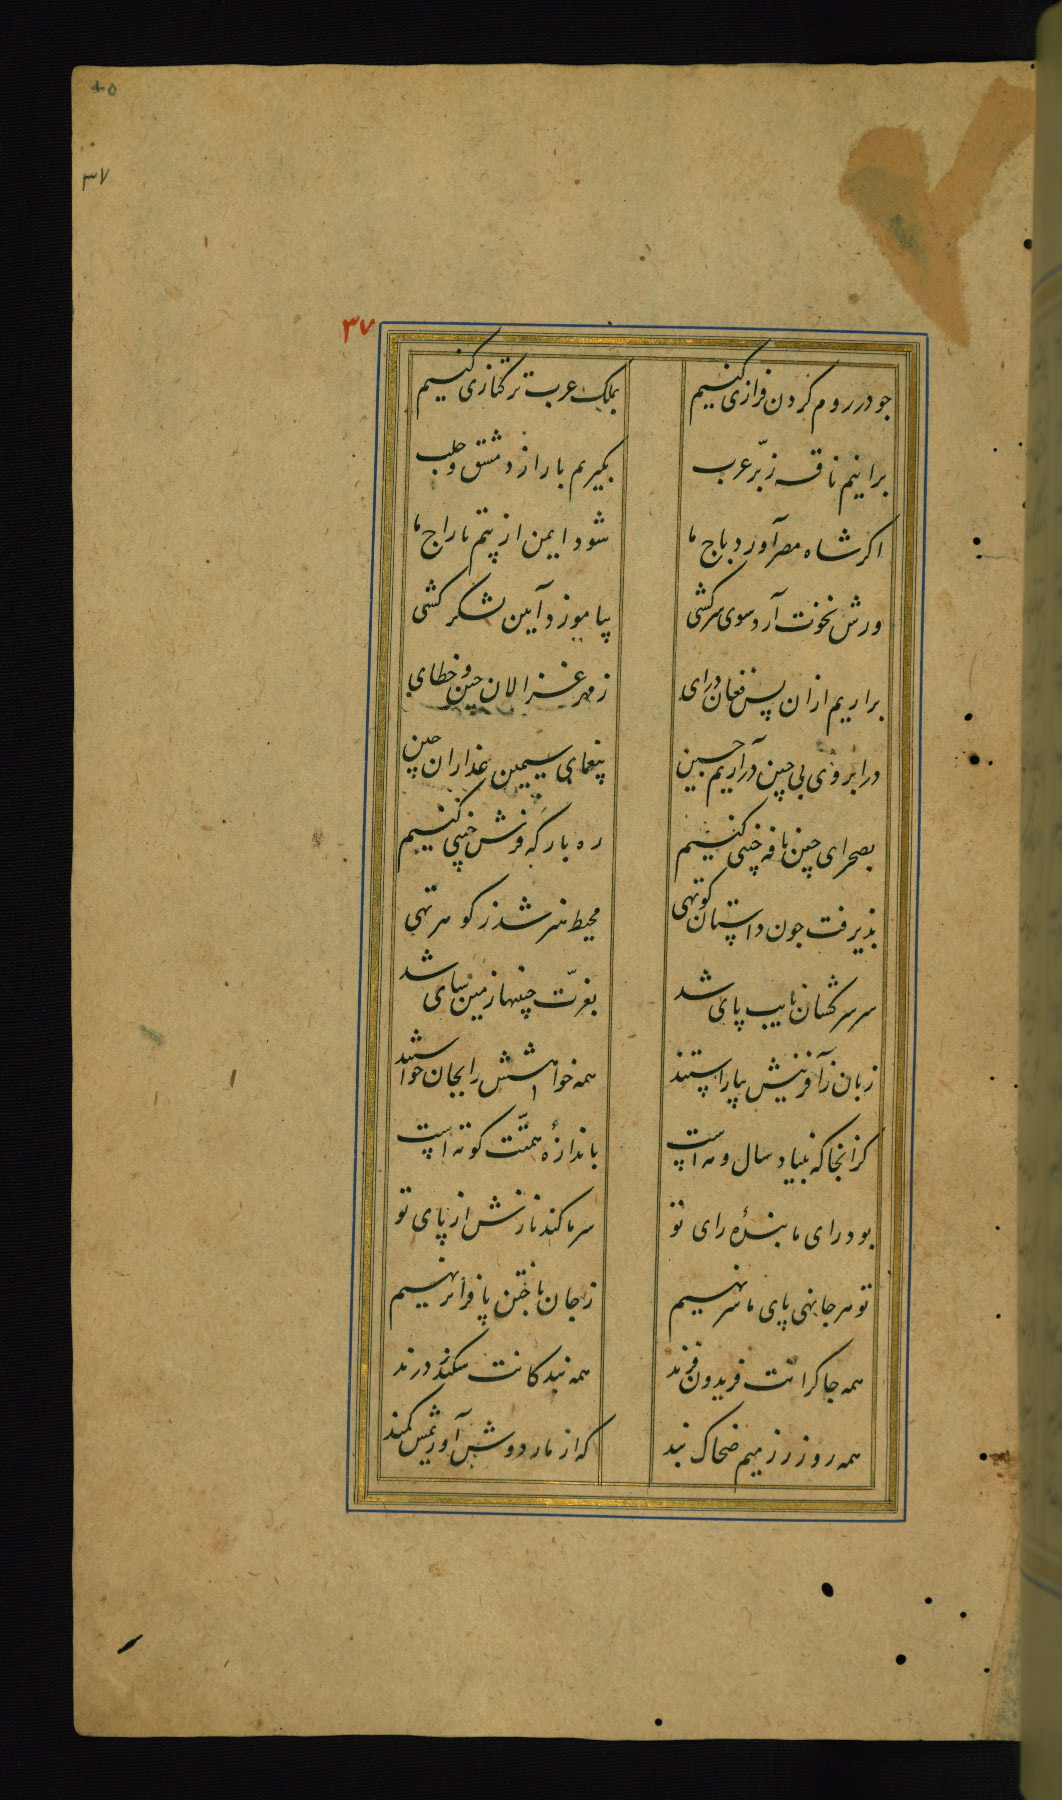 ۴۰
۳۷
۳۷
جو در روم کردن فرازی کنیم بملک عرب ترکتازی کنیم
برانیم ناقه ز بّر عرب بکیریم باراز دمشق و حلب
اکر شاه مصر آورد باج ما شود ایمن از پتم تاراج ما
ورش نخوت آرد سوی سرکشی پیاموزد آیین لشکر کشی
براریم ازان پس فغان درای ز مهر غزالان چین و خطای
در ابروی بی چین درآریم چین پنعمای سیمین عذاران چین
بصحرای چین نافه چینی کنیم ره بارکه فرش چینی کنیم
پذیرفت جون داستان کوتهی محیط هنر شد ز کوهر تهی
سر سرکشان نایب پای شد بعزّت جبنها زمین سای شد
زبان ز آفرینش بیاراستند همه خواهشش را بجان خواستند
کزانجا که بنیاد سال و مه است باندازهٔ همتت کوته است
بود رای ما بندهٔ رای تو سر ما کند نازش از پای تو
تو هر جا نهی پای ما سر نهیم ز جان باختن پا فراتر نهیم
همه جاکرانت فریدون فرند همه بندکانت سکندر درند
همه روز رزمیم ضحاک بند که از مار دوشش آوریمش کمند